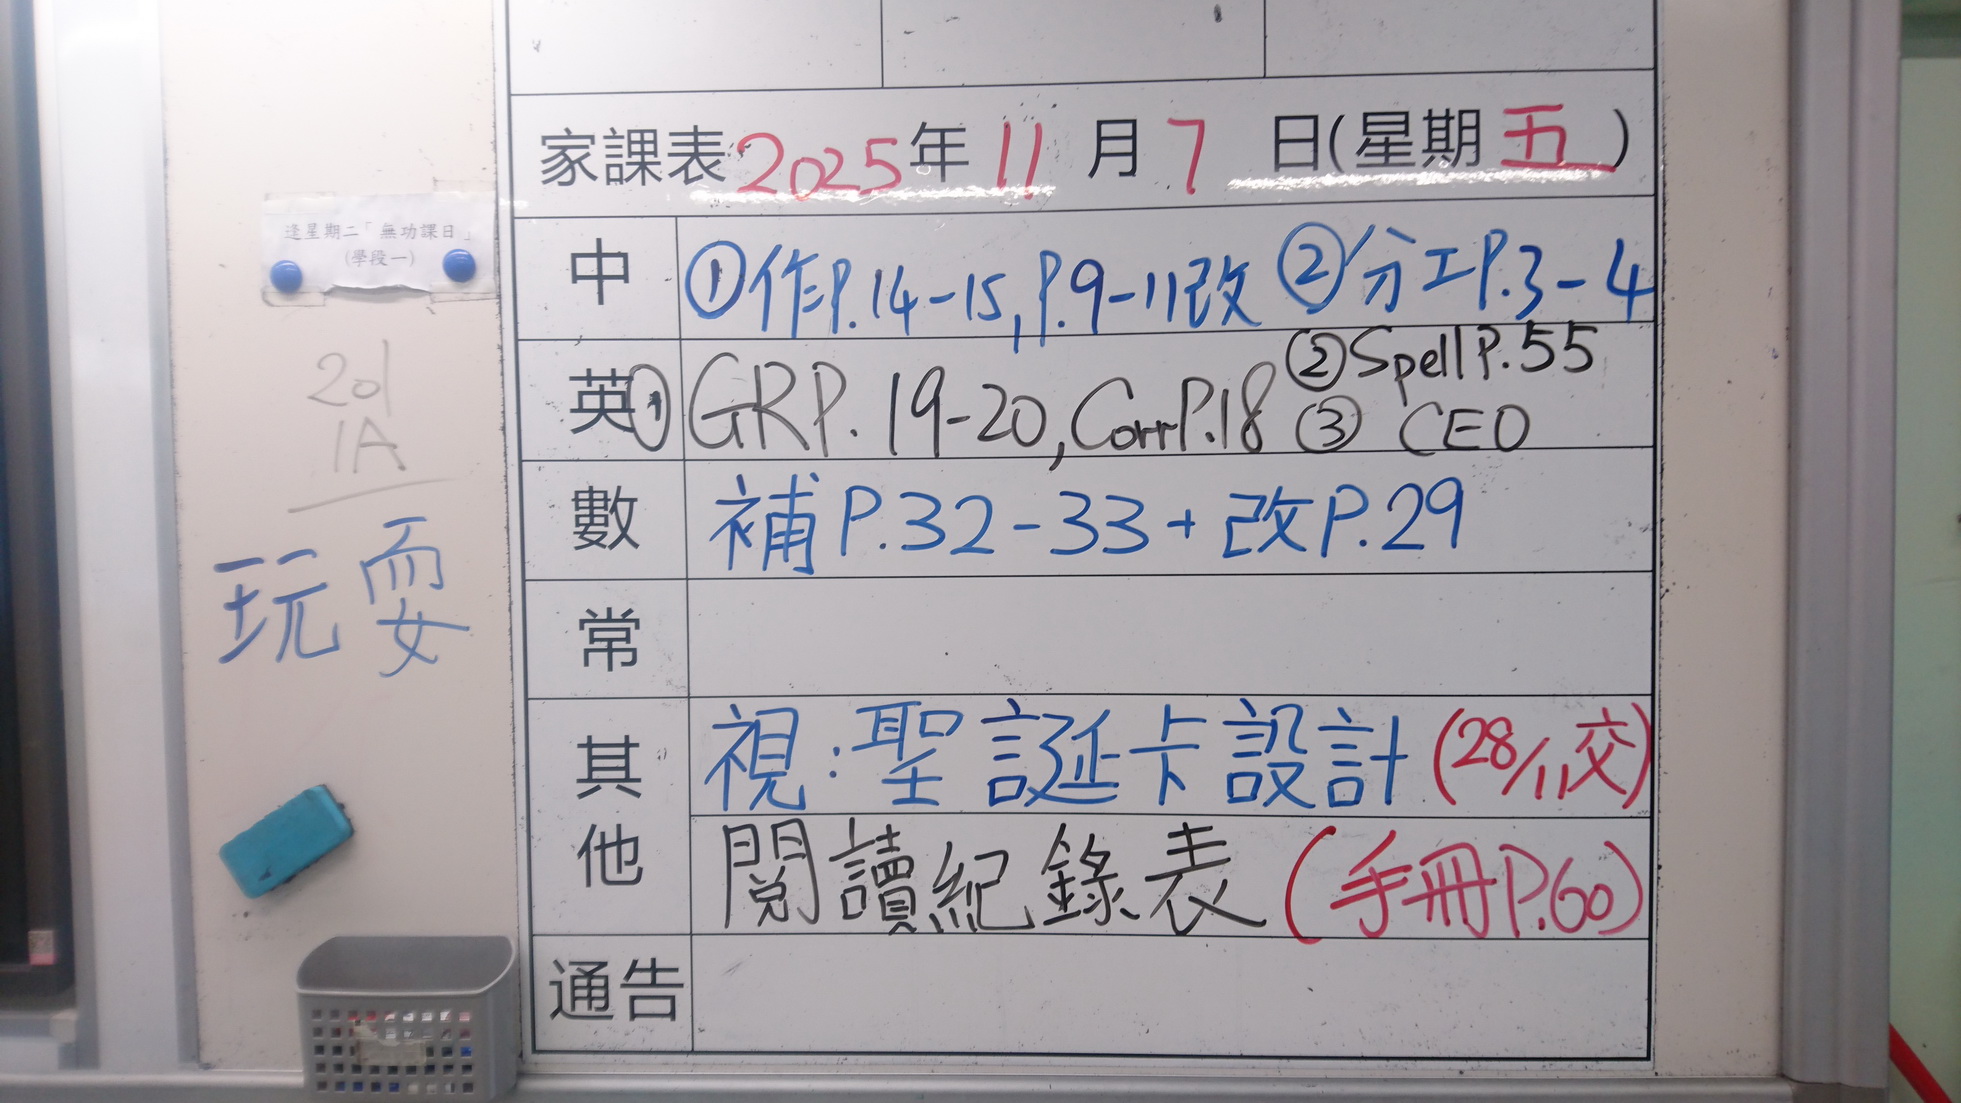 家課表2025年11月7日(星期五)
逢星期二「無功課日」
(學段一)
中 ①作P.14-15,P.9-11改 ②分工P.3-4
英 ①GRP.19-20,CorrP.18 ②SpellP.55
③ CEO
201
1A
數 補P.32-33+改P.29
玩耍
常
其他 視:聖誕卡設計(28/11交)
閱讀紀錄表(手冊P.60)
通告